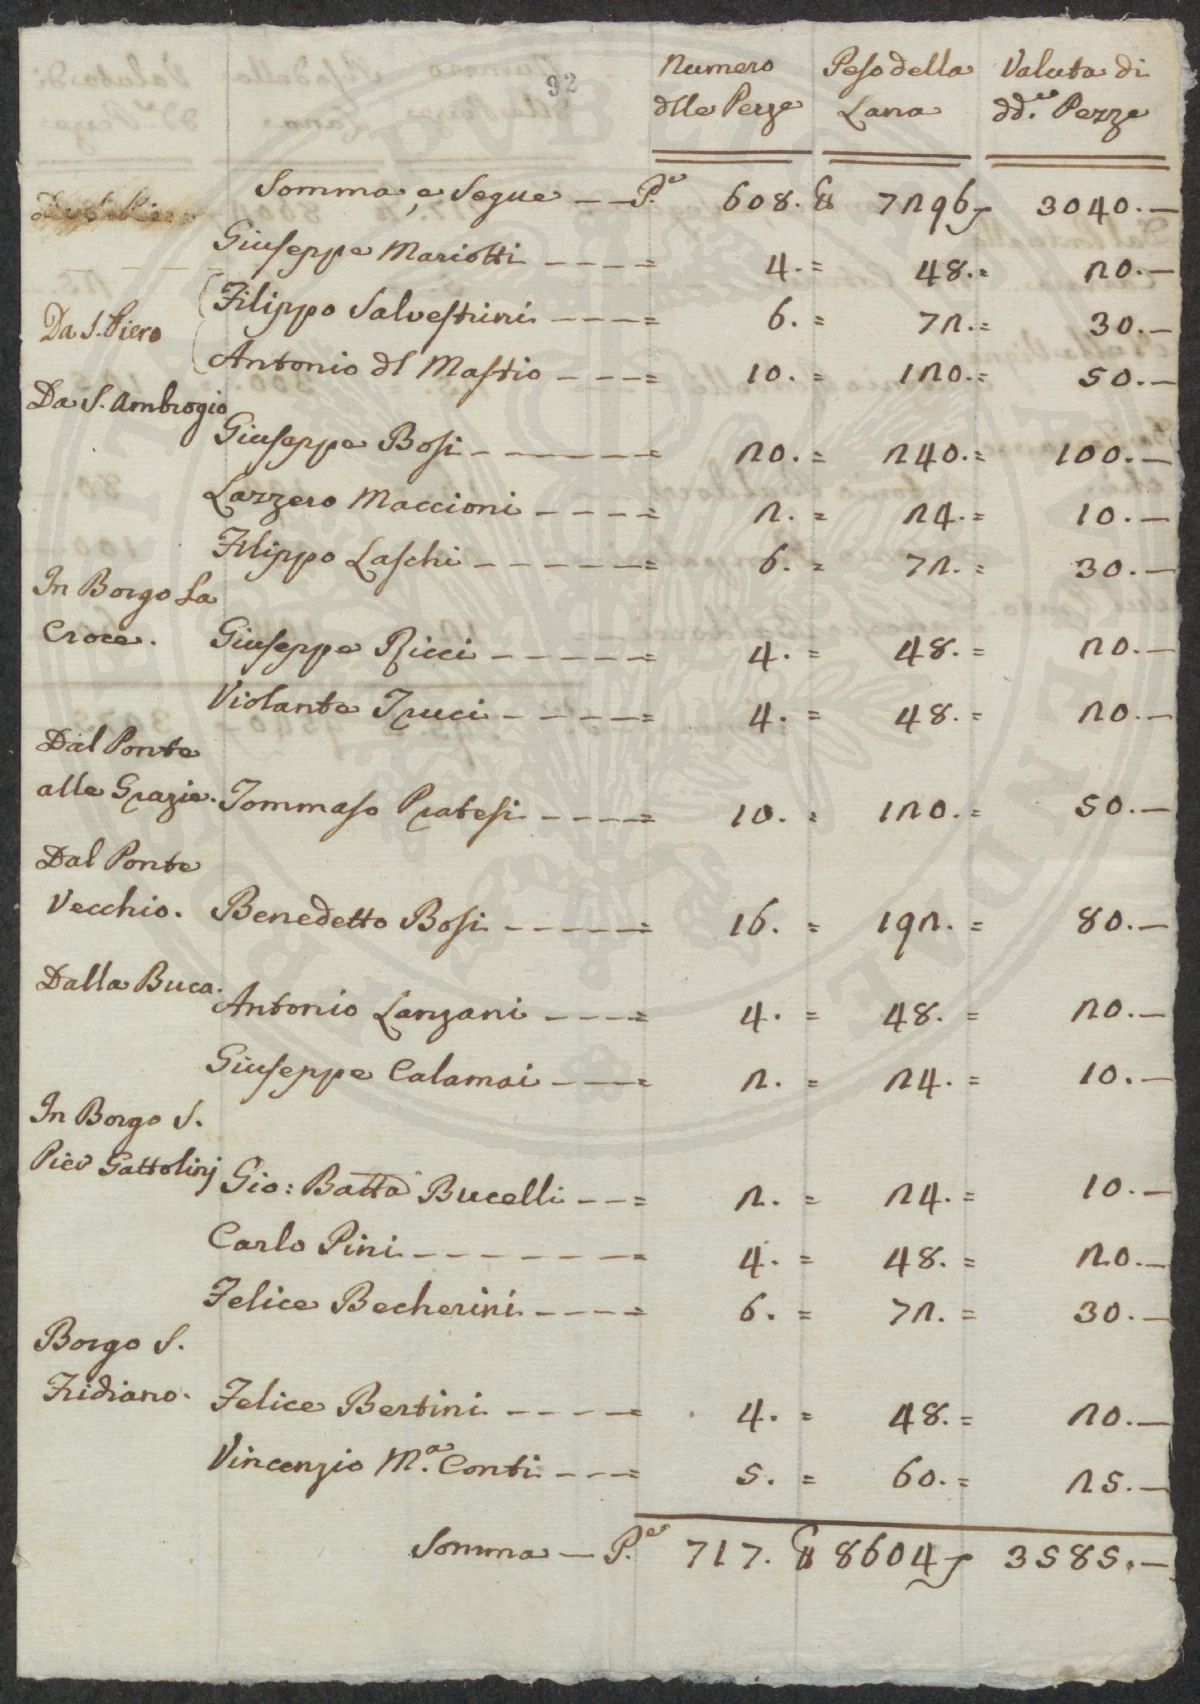 92
Numero Peso della Valuta di
dlle Pezze Lana dd.e Pezze
Somma, e Segue — P.e 608. ℔ 7296 3040.—
Giuseppe Mariotti ---- = 4. = 48. = 20.—
Filippo Salvestrini ---- = 6. = 72. = 30.—
Da S. Piero
Antonio dl Mastio --- = 10. = 120. = 50.—
Da S. Ambrogio
Giuseppe Bosi ------ = 20. = 240. = 100.—
Lazzero Maccioni ---- = 2. = 24. = 10.—
Filippo Laschi ------ = 6. = 72. = 30.—
In Borgo La
Croce. Giuseppe Ricci ----- = 4. = 48. = 20.—
Violante Truci ---- = 4. = 48. = 20.—
Dal Ponte
alle Grazie. Tommaso Pratesi ---- = 10. = 120. = 50.—
Dal Ponte
Vecchio. Benedetto Bosi ----- = 16. = 192. = 80.—
Dalla Buca.
Antonio Lanzani ---- = 4. = 48. = 20.—
Giuseppe Calamai --- = 2. = 24. = 10.—
In Borgo S.
Pier Gattolinj Gio: Batta Bucelli --- = 2. = 24. = 10.—
Carlo Pini ------- = 4. = 48. = 20.—
Felice Becherini ---- = 6. = 72. = 30.—
Borgo S.
Fridiano. Felice Bertini ---- = 4. = 48. = 20.—
Vincenzio M.a Conti --- = 5. = 60. = 25.—
Somma — P.e 717. ℔ 8604 3585.—